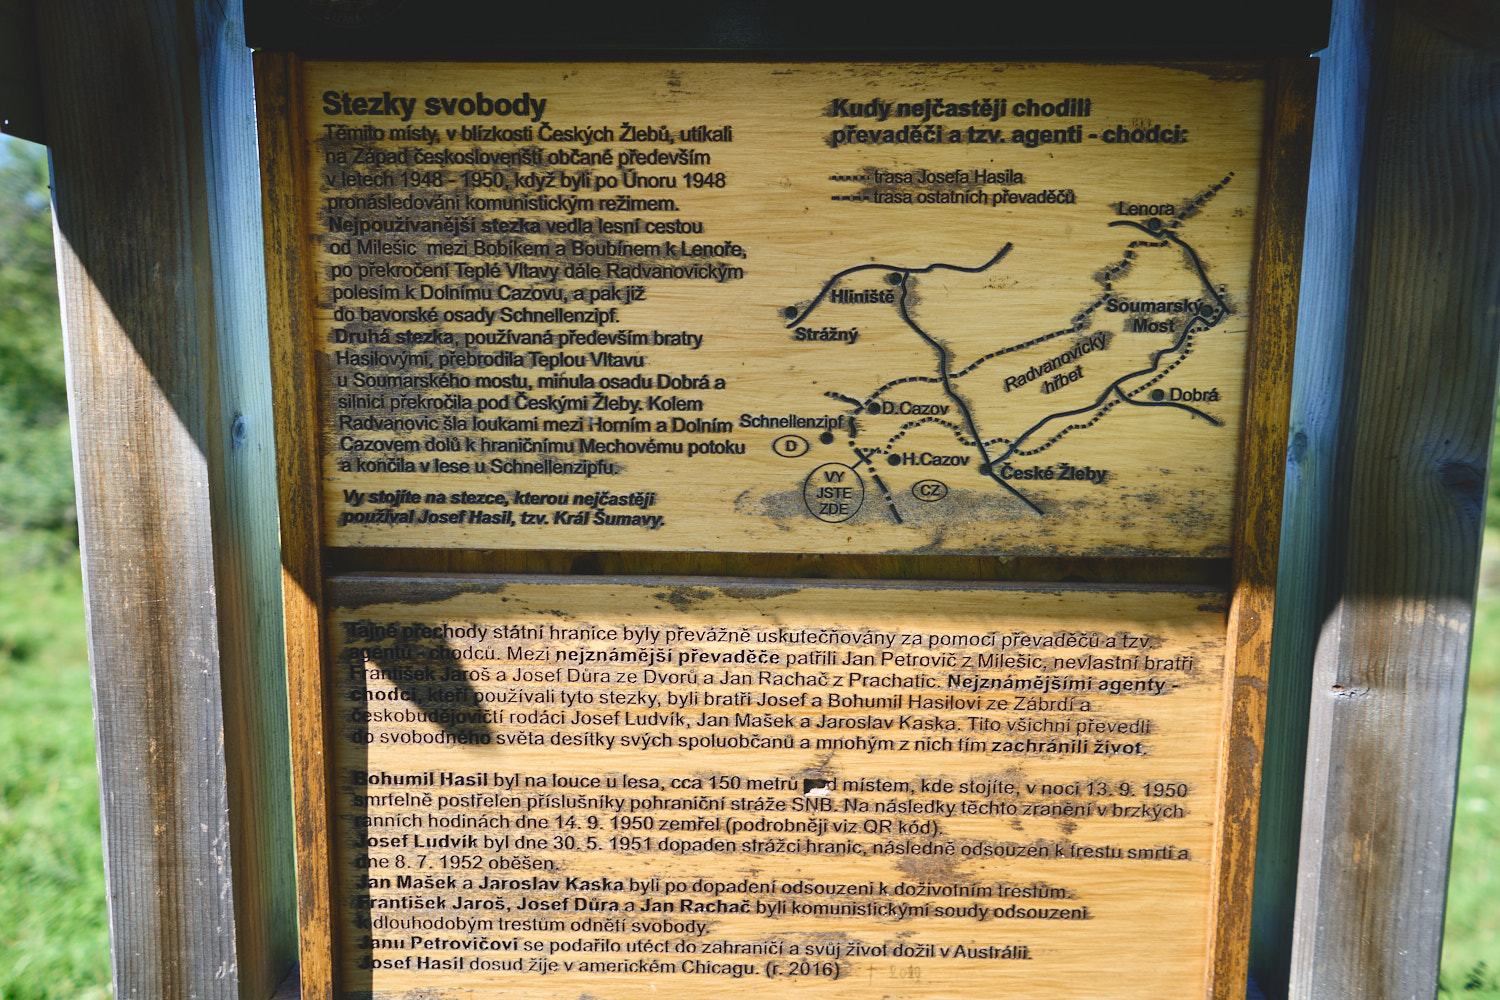 Stezky svobody
Těmito místy, v blízkosti Českých Žlebů, utíkali
na Západ českoslovenští občané především
v letech 1948 - 1950, když byli po Únoru 1948
pronásledováni komunistickým režimem.
Nejpoužívanější stezka vedla lesní cestou
od Milešic mezi Bobíkem a Boubínem k Lenoře,
po překročení Teplé Vltavy dále Radvanovickým
polesím k Dolnímu Cazovu, a pak již
do bavorské osady Schnellenzipf.
Druhá stezka, používaná především bratry
Hasilovými, přebrodila Teplou Vltavu
u Soumarského mostu, minula osadu Dobrá a
silnici překročila pod Českými Žleby. Kolem
Radvanovic šla loukami mezi Horním a Dolním
Cazovem dolů k hraničnímu Mechovému potoku
a končila v lese u Schnellenzipfu.
Vy stojíte na stezce, kterou nejčastěji
používal Josef Hasil, tzv. Král Šumavy.
Kudy nejčastěji chodili
převaděči a tzv. agenti - chodci:
trasa Josefa Hasila
trasa ostatních převaděčů
Lenora
Hliniště
Strážný
Soumarský
Most
Radvanovický
hřbet
Dobrá
D.Cazov
Schnellenzipf
D
H.Cazov
České Žleby
VY
JSTE
ZDE
CZ
Tajné přechody státní hranice byly převážně uskutečňovány za pomoci převaděčů a tzv.
agentů - chodců. Mezi nejznámější převaděče patřili Jan Petrovič z Milešic, nevlastní bratři
František Jaroš a Josef Důra ze Dvorů a Jan Rachač z Prachatic. Nejznámějšími agenty -
chodci, kteří používali tyto stezky, byli bratři Josef a Bohumil Hasilovi ze Zábrdí a
českobudějovičtí rodáci Josef Ludvík, Jan Mašek a Jaroslav Kaska. Tito všichni převedli
do svobodného světa desítky svých spoluobčanů a mnohým z nich tím zachránili život.
Bohumil Hasil byl na louce u lesa, cca 150 metrů d místem, kde stojíte, v noci 13. 9. 1950
smrtelně postřelen příslušníky pohraniční stráže SNB. Na následky těchto zranění v brzkých
ranních hodinách dne 14. 9. 1950 zemřel (podrobněji viz QR kód).
Josef Ludvík byl dne 30. 5. 1951 dopaden strážci hranic, následně odsouzen k trestu smrti a
dne 8. 7. 1952 oběšen.
Jan Mašek a Jaroslav Kaska byli po dopadení odsouzeni k doživotním trestům.
František Jaroš, Josef Důra a Jan Rachač byli komunistickými soudy odsouzeni
k dlouhodobým trestům odnětí svobody.
Janu Petrovičovi se podařilo utéct do zahraničí a svůj život dožil v Austrálii.
Josef Hasil dosud žije v americkém Chicagu. (r. 2016) † 2019